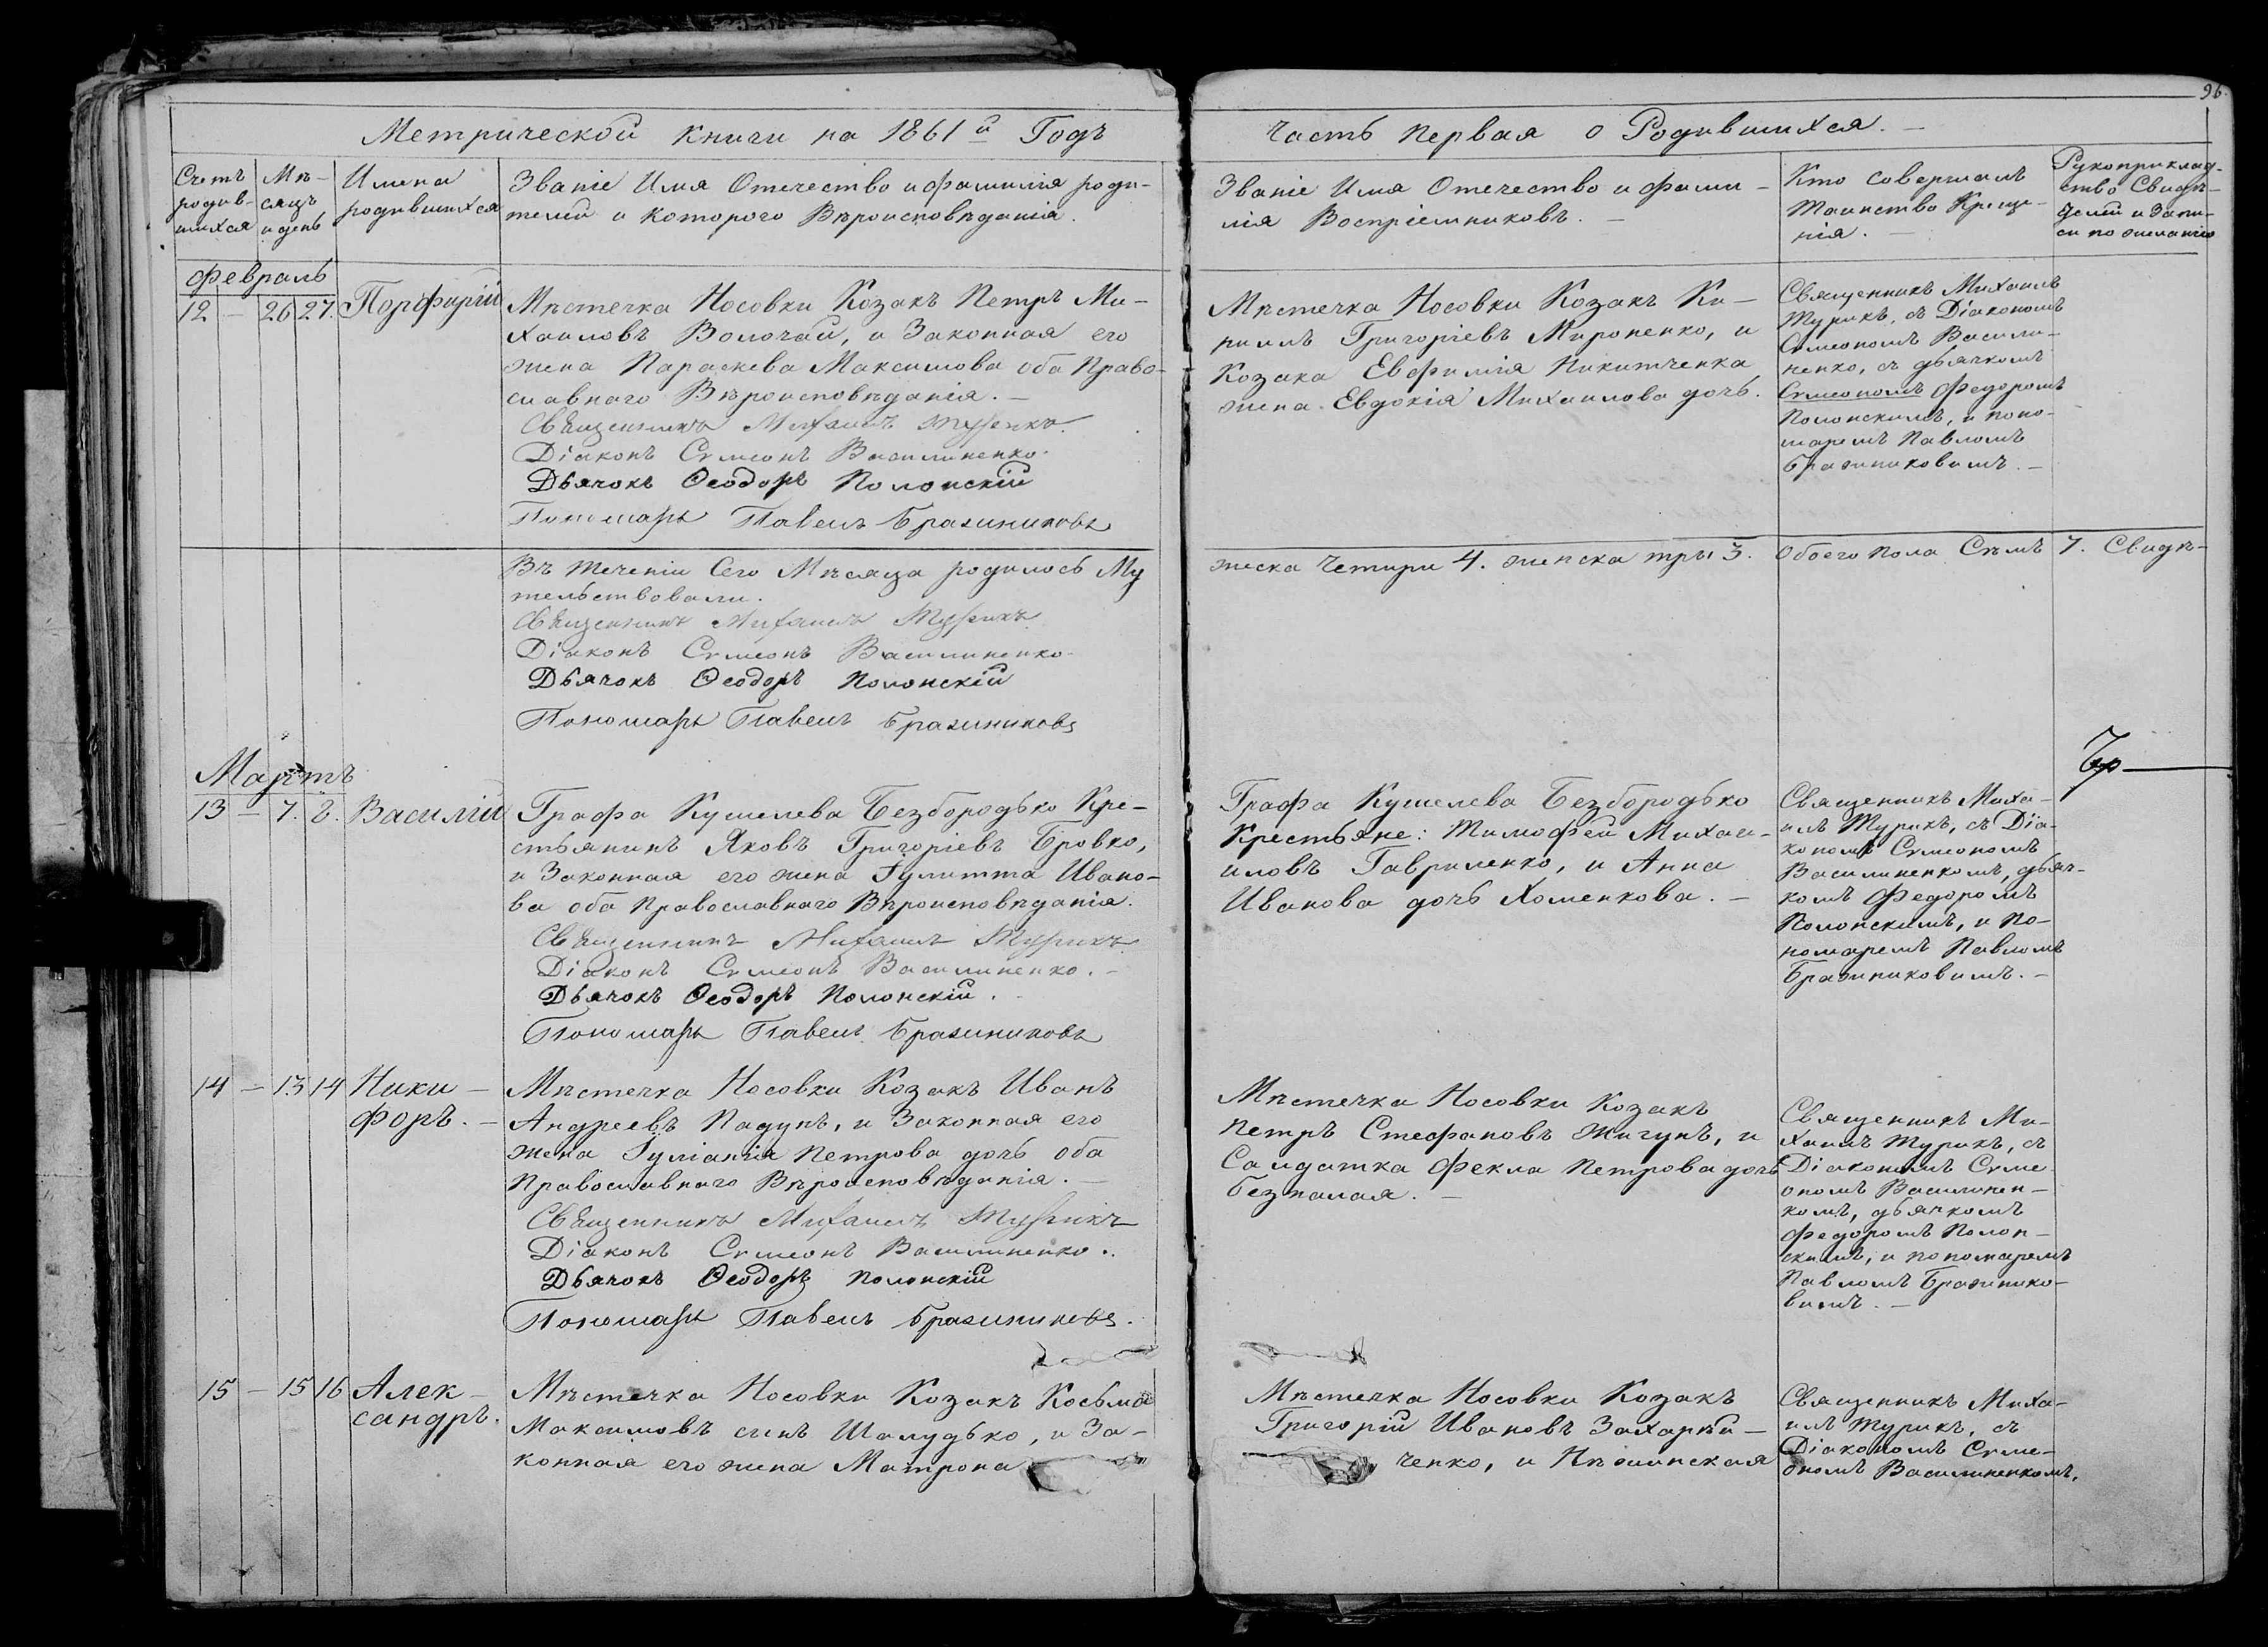 96.
Метрической книги на 1861й Годъ
Часть Первая о Родившихся. —
Счетъ
родив-
шихся
Мѣ-
сяцъ
и день
Имена
родившихся
Званіе Имя Отечество и фамилія роди-
телей и Которого Вѣроисповѣданія.
Званіе Имя Отечество и фами-
лія Воспріемниковъ. —
Кто совершалъ
Таинство Креще-
нія. —
Рукоприклад-
ство Свидѣ-
телей и Запи-
си по желанію
Февраль
12 — 26 27. Порфирій
Мѣстечка Носовки Козакъ Петръ Ми-
хаиловъ Волочай, и Законная его
жена Параскева Максимова оба Право-
славнаго Вѣроисповѣданія. —
Священникъ Михаилъ Турикъ.
Діаконъ Сѵмеонъ Василиненко.
Дьячокъ Ѳеодоръ Полонскій
Пономарь Павелъ Бражниковъ
Мѣстечка Носовки Козакъ Ки-
рилъ Григоріевъ Мироненко, и
Козака Евфимія Никитченка
жена Евдокія Михаилова дочь.
Священникъ Михаилъ
Турикъ, съ Діакономъ
Сѵмеономъ Васили-
ненко, съ дьячкомъ
Сѵмеономъ Федоромъ
Полонскимъ, и поно-
маремъ Павломъ
Бражниковимъ. —
Въ теченіи Сего Мѣсяца родилось Му
жеска Четири 4. женска три 3. Обоего пола Сѣмъ 7. Свидѣ-
тельствовали.
Священникъ Михаилъ Турикъ
Діаконъ Сѵмеонъ Василиненко
Дьячокъ Ѳеодоръ Полонскій
Пономарь Павелъ Бражниковъ
Мартъ
13 — 7. 8. Василій
Графа Кушелева Безбородько Кре-
стьянинъ Яковъ Григоріевъ Бровко,
и Законная его жена Іулитта Ивано-
ва оба Православнаго Вѣроисповѣданія.
Священникъ Михаилъ Турикъ
Діаконъ Сѵмеонъ Василиненко. —
Дьячокъ Ѳеодоръ Полонскій.
Пономарь Павелъ Бражниковъ
Графа Кушелева Безбородько
Крестьяне: Тимофей Михаи-
иловъ Гавриленко, и Анна
Иванова дочь Хоменкова. —
Священникъ Миха-
илъ Турикъ, съ Діа-
кономъ Сѵмеономъ
Василиненкомъ, дьяч-
комъ Федоромъ
Полонскимъ, и по-
номаремъ Павломъ
Бражниковимъ. —
14 — 13 14 Ники —
форъ. —
Мѣстечка Носовки Козакъ Иванъ
Андреевъ Падунъ, и Законная его
жена Іуліанія Петрова дочь оба
Православнаго Вѣроисповѣданія. —
Священникъ Михаилъ Турикъ
Діаконъ Сѵмеонъ Василиненко.
Дьячокъ Ѳеодоръ Полонскій
Пономарь Павелъ Бражниковъ.
Мѣстечка Носовки Козакъ
Петръ Стефановъ Жигунъ, и
Салдатка Фекла Петрова дочь
безпалая. —
Священникъ Ми-
хаилъ Турикъ, съ
Діакономъ Сѵме
ономъ Василинен-
комъ, дьячкомъ
Федоромъ Полон-
скимъ, и пономаремъ
Павломъ Бражнико-
вимъ. —
15 — 15 16 Алек —
сандръ.
Мѣстечка Носовки Козакъ Косьма
Максимовъ синъ Шалудько, и За-
конная его жена Матрона
Мѣстечка Носовки Козакъ
Григорій Ивановъ Захарі-
ченко, и Нѣжинская
Священникъ Миха-
илъ Турикъ, съ
Діакономъ Сѵме-
ономъ Василиненкомъ,